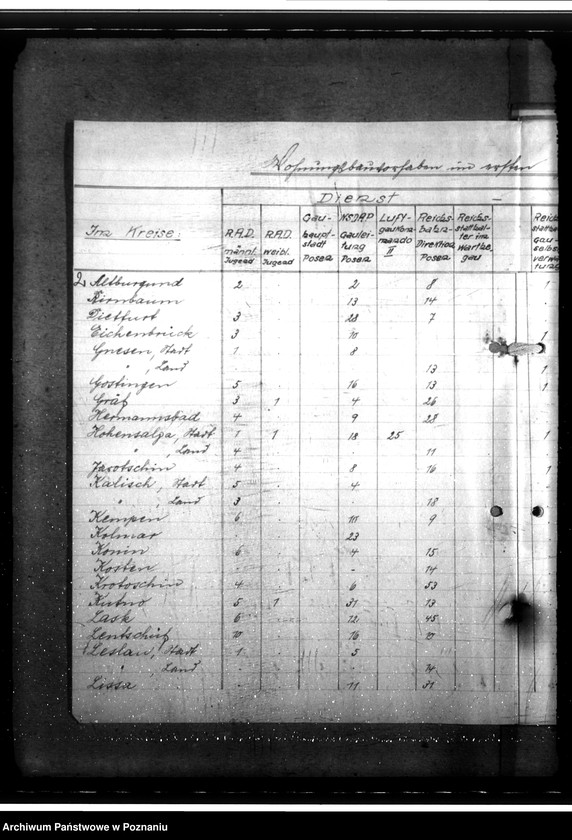 Wohnungsbauvorhaben im ersten
Dienst -
Im Kreise:
R.A.D. männl. Jugend
R.A.D. weibl. Jugend
Gau- haupt- stadt Posen
NSDAP Gaulei- tung Posen
Luft- gaukom- mando II
Reichs- bahn- Direktion Posen
Reichs- statthal- ter im Warthe- gau
Altburgund 2 . . 2 . 8 . 1
Birnbaum . . . 13 . 14
Dietfurt 3 . . 28 . 7
Eichenbrück 3 . . 10 . . . 1
Gnesen, Stadt 1 . . 8
" , Land . . . . . 13 . 1
Gostingen 5 . . 16 . 13 . 1
Grätz 3 1 . 4 . 26
Hermannsbad 4 . . 9 . 28
Hohensalza, Stadt 1 1 . 18 25 . . 1
" , Land 4 . . . . 11
Jarotschin 4 . . 8 . 16 . 1
Kalisch, Stadt 5 . . 4
" , Land 3 . . . . 18
Kempen 6 . . 10 . 9
Kolmar . . . 23
Konin 6 . . 4 . 15
Kosten . . . - . 14
Krotoschin 4 . . 6 . 53
Kutno 5 1 . 31 . 13
Lask 6 . . 12 . 45
Lentschütz 10 . . 16 . 10
Leslau, Stadt 1 . . 5
" , Land . . . . . 74
Lissa - . . 11 . 31
Archiwum Państwowe w Poznaniu